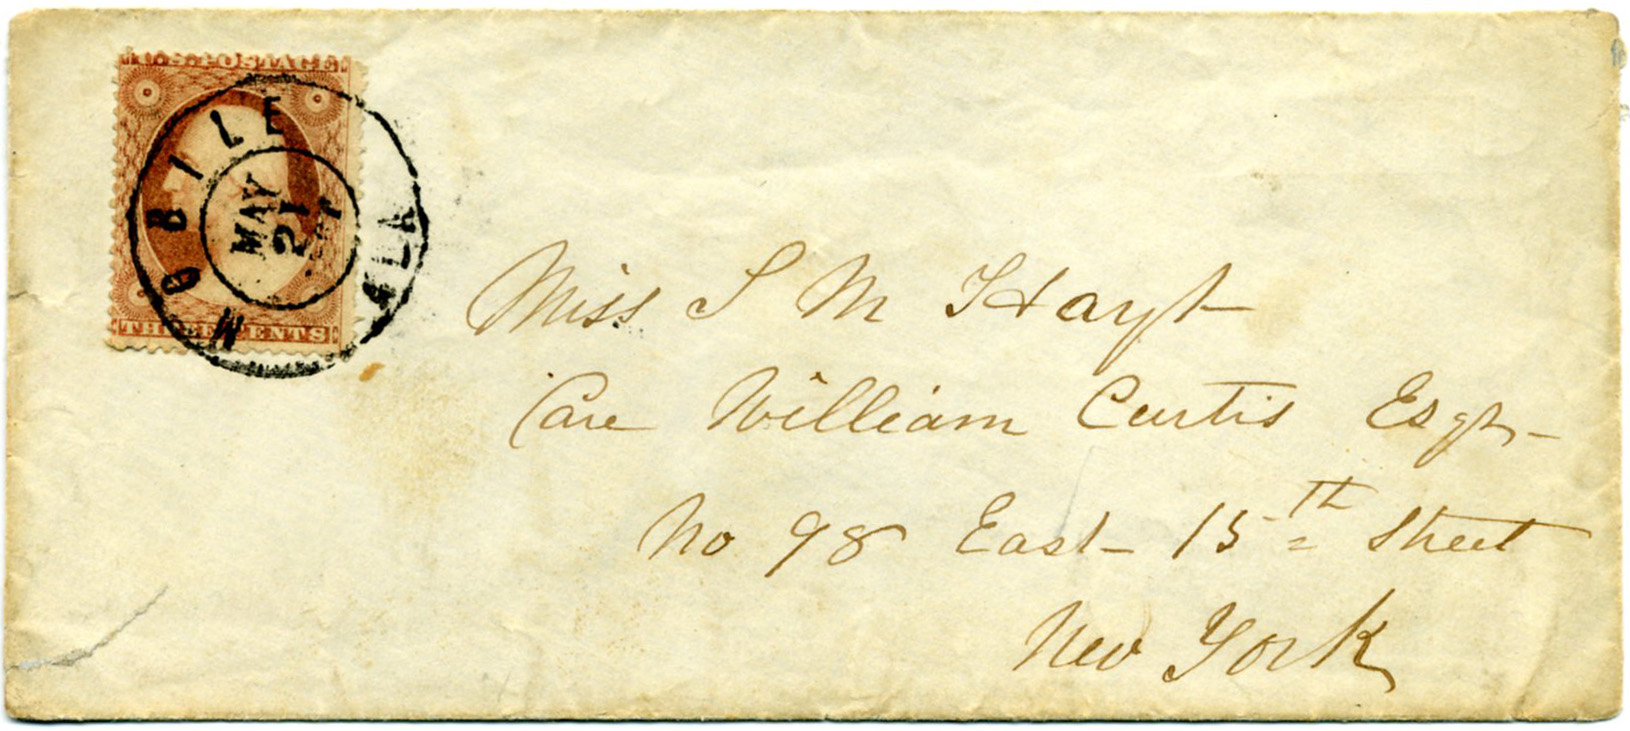 U.S. POSTAGE
THREE CENTS
MOBILE ALA
MAY
21
Miss S M Hoyt
Care William Curtis Esqr
No 98 East 15th Street
New York